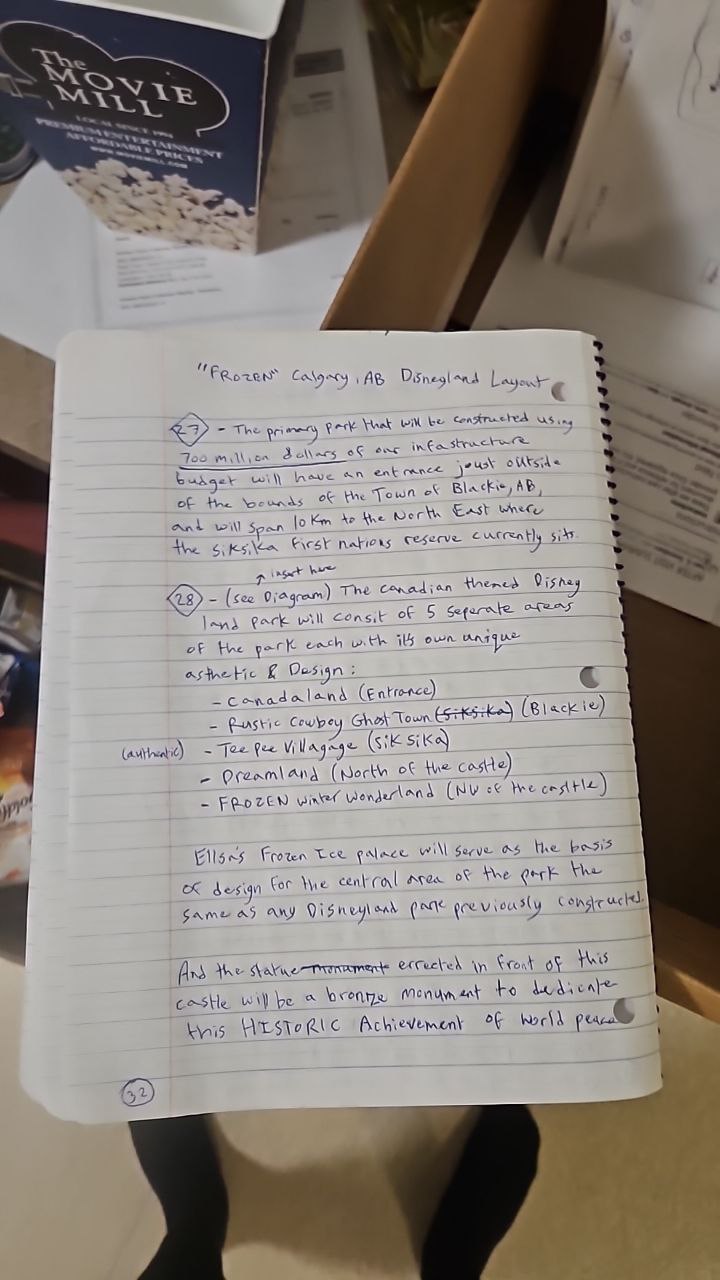 The
MOVIE
MILL
LOCAL SINCE 1994
PREMIUM ENTERTAINMENT
AFFORDABLE PRICES
WWW.MOVIEMILL.COM
"FROZEN" Calgary, AB Disneyland Layout
27 - The primary park that will be constructed using
700 million dollars of our infastructure
budget will have an entrance joust outside
of the bounds of the Town of Blackie, AB,
and will span 10 Km to the North East where
the Siksika First nations reserve currently sits.
↑ insert here
28 - (see Diagram) The Canadian themed Disney
land park will consit of 5 seperate areas
of the park each with it's own unique
asthetic & Design:
- Canadaland (Entrance)
- Rustic Cowboy Ghost Town (Siksika) (Blackie)
(authentic) - Tee Pee Villagage (Siksika)
- Dreamland (North of the castle)
- FROZEN Winter Wonderland (NW of the casltle)
Ellsa's Frozen Ice palace will serve as the basis
of design for the central area of the park the
same as any Disneyland park previously constructed.
And the statue monument errected in front of this
castle will be a bronze monument to dedicate
this HISTORIC Achievement of world peace
32